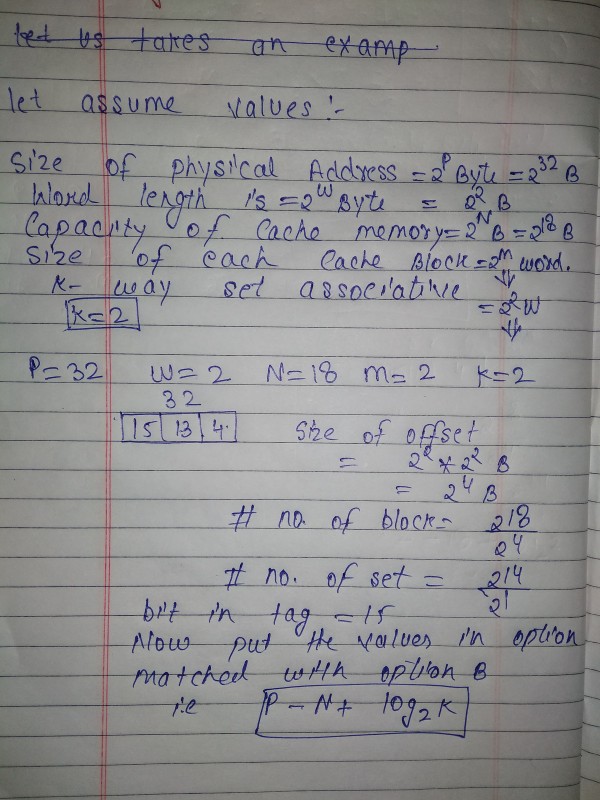 let us takes an examp
let assume values :-
Size of physical Address = 2^P Byte = 2^32 B
Word length is = 2^W Byte = 2^2 B
Capacity of Cache memory = 2^N B = 2^18 B
Size of each Cache Block = 2^m word.
K- way set associative = 2^2 W
K = 2
P = 32 W = 2 N = 18 m = 2 K = 2
32
15 13 4
Size of offset
= 2^2 * 2^2 B
= 2^4 B
# no. of block = 2^18 / 2^4
# no. of set = 2^14 / 2^1
bit in tag = 15
Now put the values in option
matched with option B
i.e P - N + log2 K